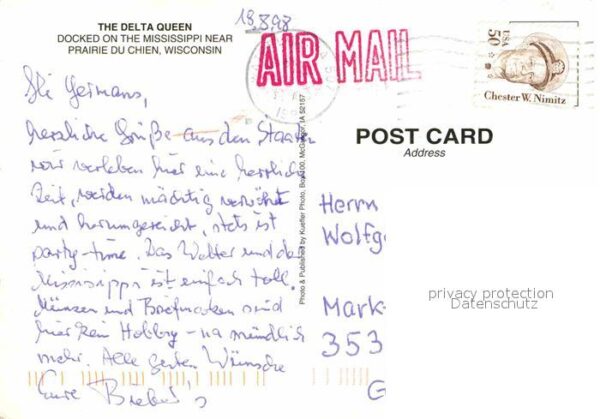 THE DELTA QUEEN
DOCKED ON THE MISSISSIPPI NEAR
PRAIRIE DU CHIEN, WISCONSIN
19.8.98
AIR MAIL
USA
50
Chester W. Nimitz
Hi Germans,
herzliche Grüße aus den Staaten
wir verleben hier eine herrliche
Zeit, werden mächtig verwöhnt
und herumgereicht, stets ist
party-time. Das Wetter und der
Mississippi ist einfach toll.
Münzen und Briefmarken sind
hier kein Hobby - na mündlich
mehr. Alle guten Wünsche
Eure
Photo & Published by Kueffer Photo, Box 100, McGregor, IA 52157
POST CARD
Address
Herrn
Wolfg
Mark-
353
G
privacy protection
Datenschutz